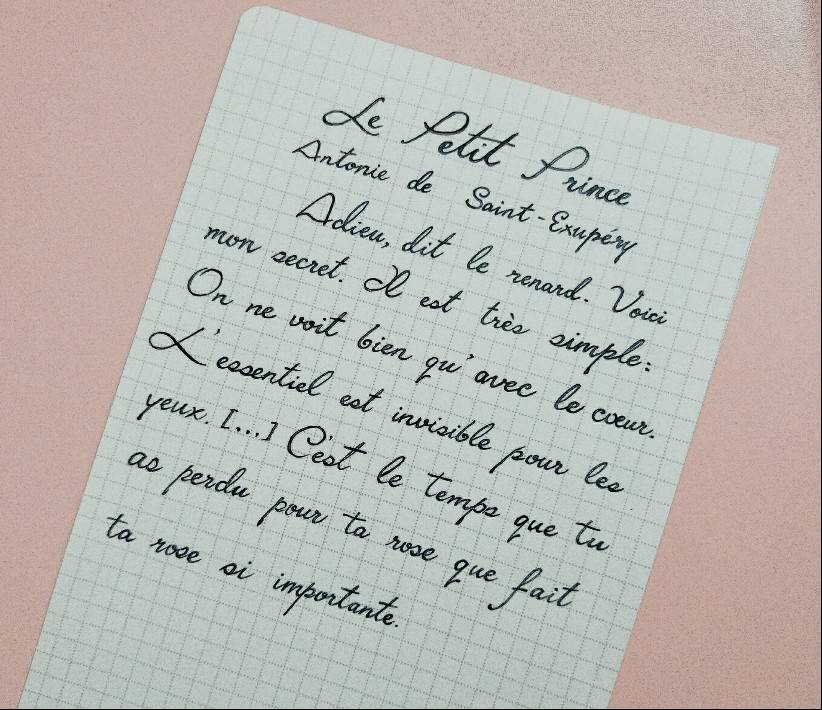 Le Petit Prince
Antonie de Saint-Exupéry
Adieu, dit le renard. Voici
mon secret. Il est très simple:
On ne voit bien qu'avec le cœur.
L'essentiel est invisible pour les
yeux. [...] C'est le temps que tu
as perdu pour ta rose que fait
ta rose si importante.